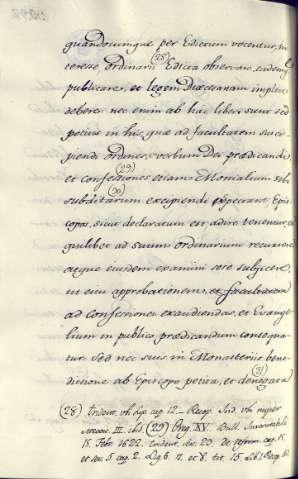 quandocumque per Edictum vocentur, in
teresse, ordinarii (28) Edicta observare, eademq
publicare, et legem Dioecesanam implere
debere nec enim ab hac liberi sunt sed
potius in his, quae ad facultatem susci
piendi ordines, verbum Dei praedicandi
(29) et confessiones etiam Monialium sibi
(30) subditarum excipiendi spectant, Epis
copos, sicut declaratum est, adire tenentur, et
quilibet ad suum ordinarium recurrere
atque eiusdem examini sese subjicere,
ut eius approbationem, et facultatem
ad confessiones exaudiendas, et Evange
lium in publico praedicandum consequa
tur sed nec suis in Monasteriis bene
dictione ab Episcopo petita, et denegata (31)
(28) Trident. cap. 12 Recop. Ind. ubi nuper
III. ibid (29) Greg. XV. Bull. Inscrutabili
15. Febr. 1622. Trident. 23. de reform. cap. 15.
et ses. 5. cap. 2. Leg 6. 7. et 8. tit 15. lib. 1 Recop.